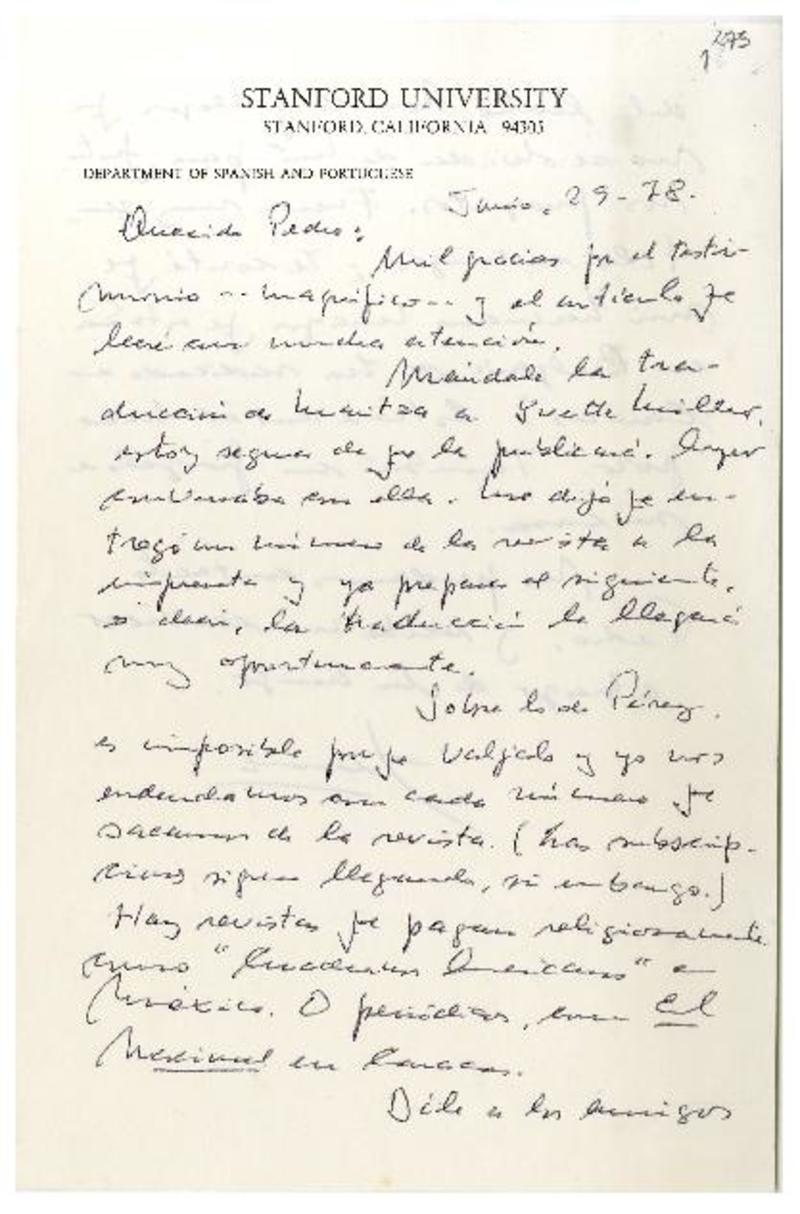 275
1
STANFORD UNIVERSITY
STANFORD, CALIFORNIA 94305
DEPARTMENT OF SPANISH AND PORTUGUESE
Junio, 29-78.
Querido Pedro:
Mil gracias por el testi-
monio -- magnífico -- y el artículo qe
leeré con mucha atención.
Mándale la tra-
ducción de Maritza a Yvette Miller,
estoy seguro de qe la publicará. Ayer
conversaba con ella. Me dijo qe en-
tregó un número de la revista a la
imprenta y ya prepara el siguiente,
es decir, la traducción le llegará
muy oportunamente.
Sobre lo de Pérez,
es imposible porqe Valjalo y yo nos
endeudamos con cada número qe
sacamos de la revista. (Las subscrip-
ciones siguen llegando, sin embargo.)
Hay revistas qe pagan religiosamente
como "Cuadernos Americanos" en
México. O periódicos, como El
Nacional en Caracas.
Dile a los amigos